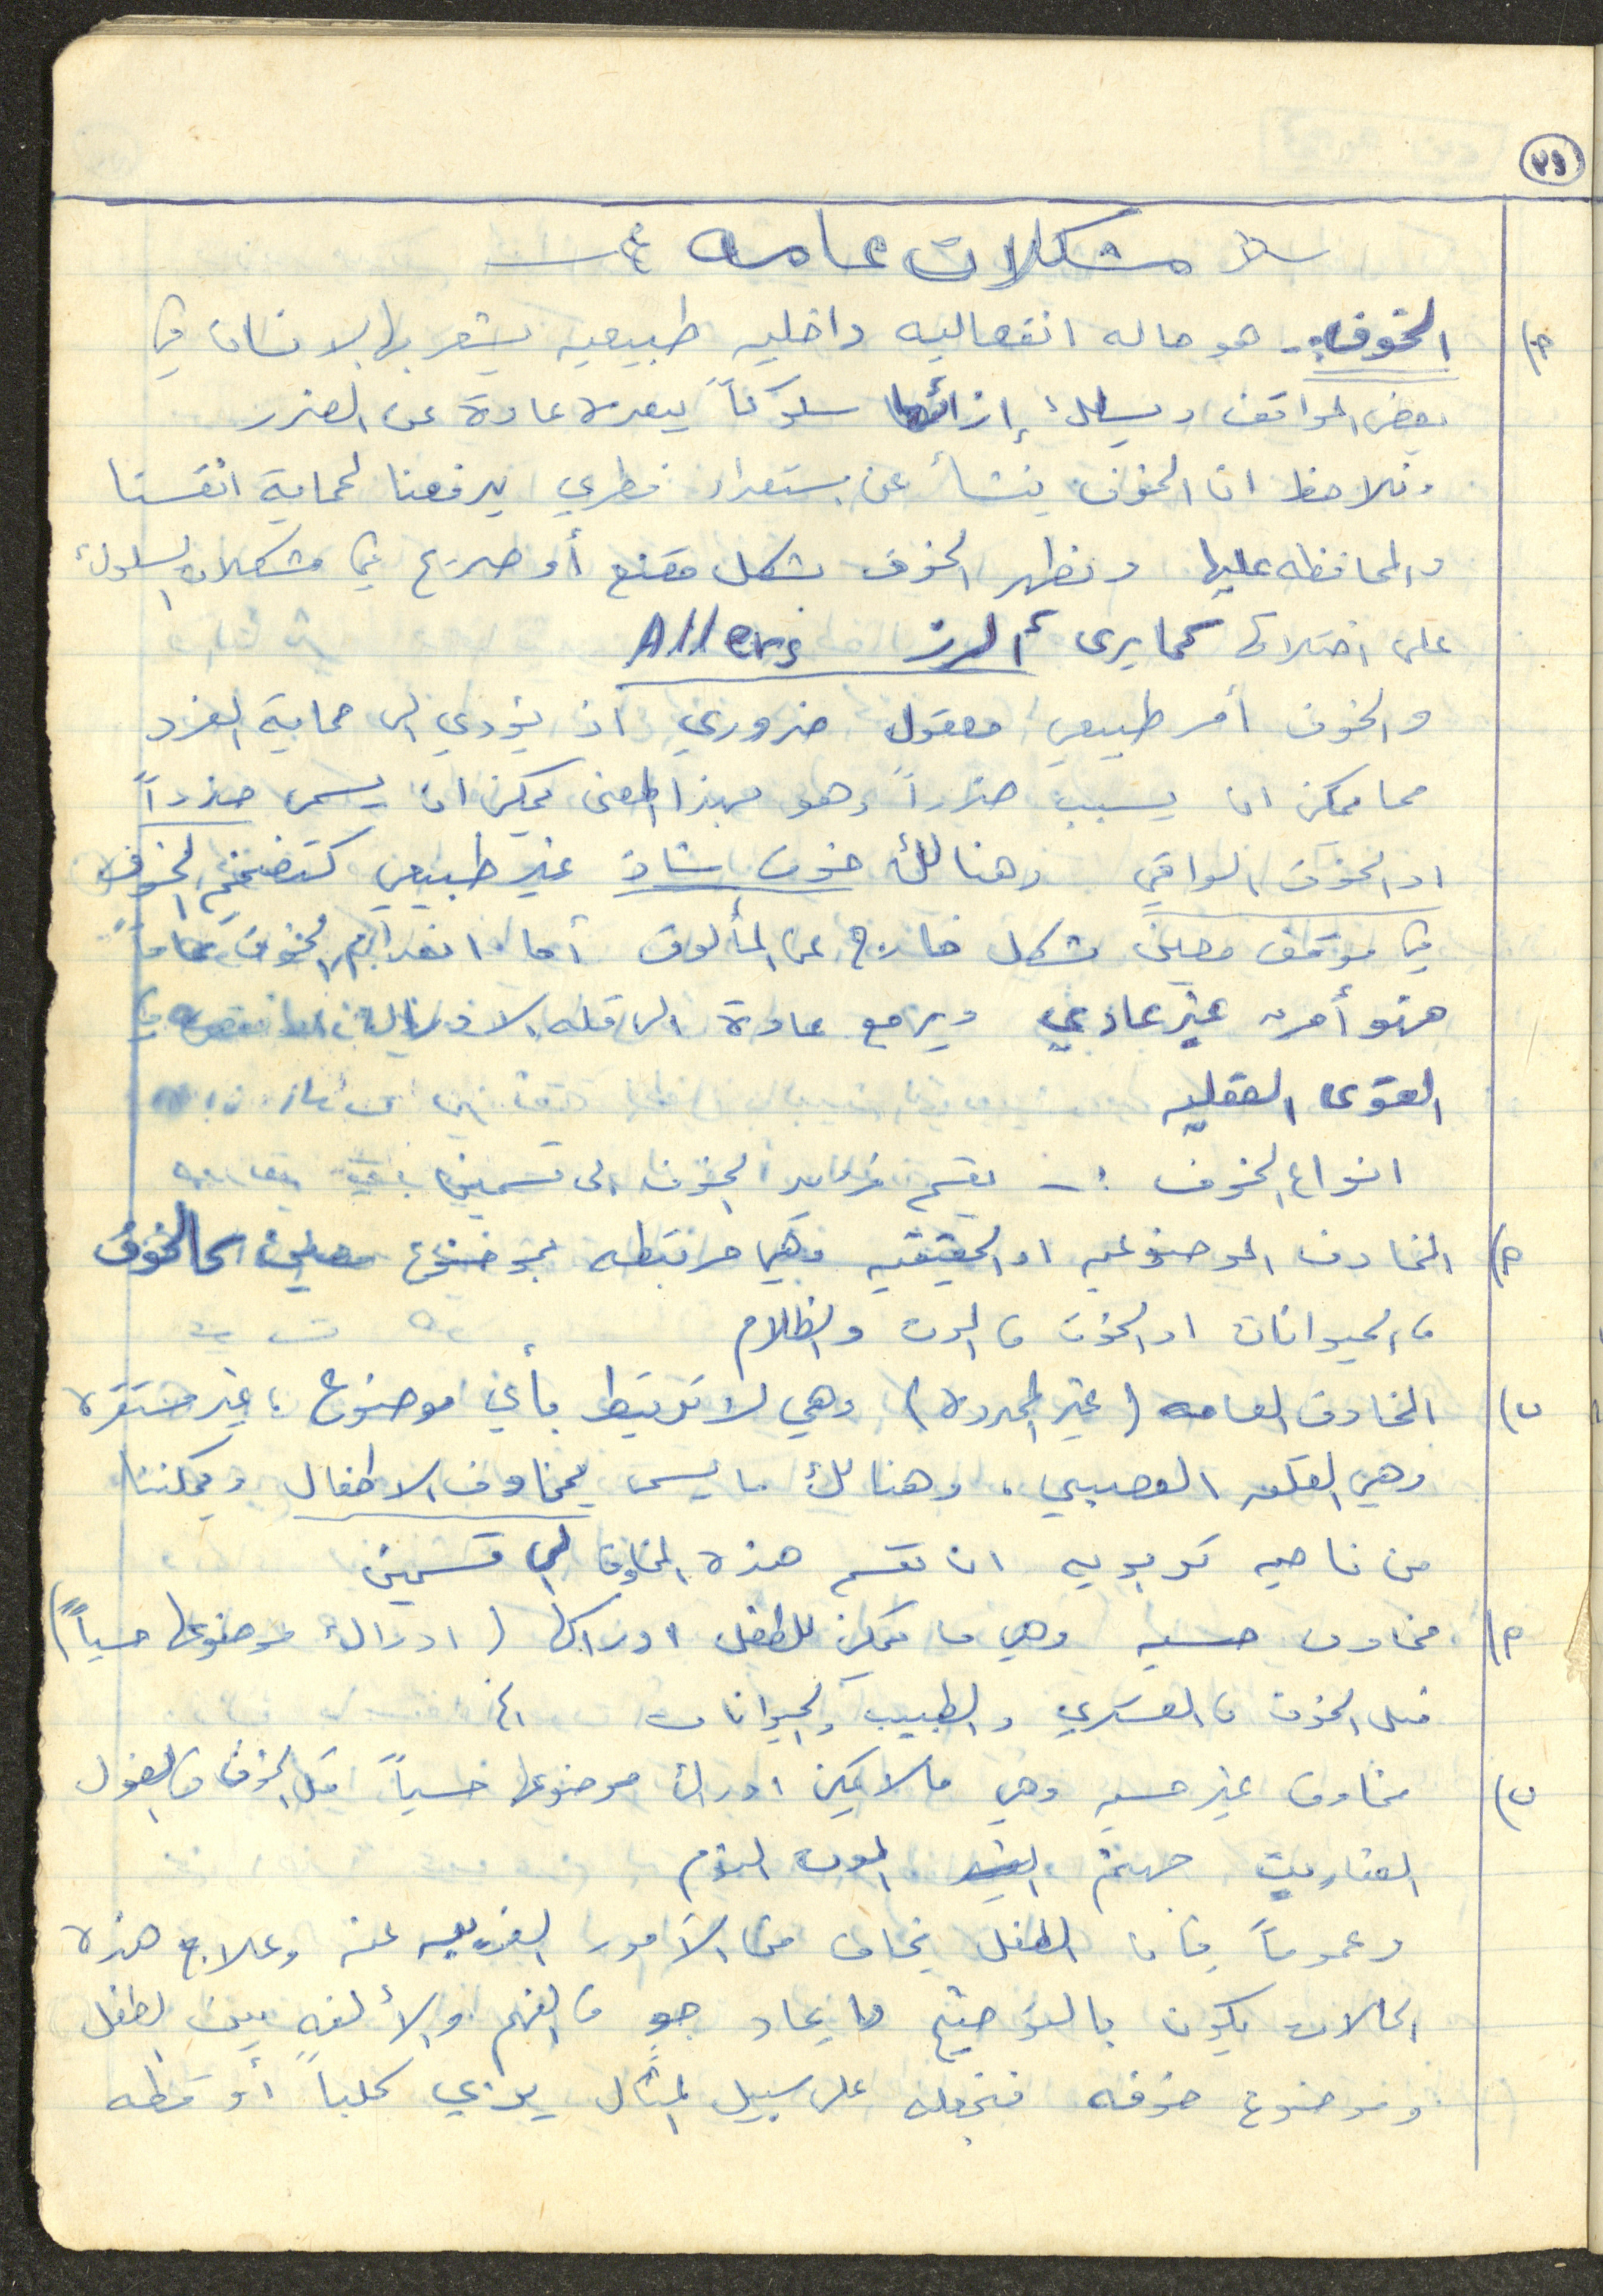 ٢٩
مشكلات عامه :-
أ) الخوف :- هو حاله انفعاليه داخليه طبيعيه يشعر بها الانسان في
بعض المواقف ويسلك إزائها سلوكاً يبعده عادة عن الضرر
ونلاحظ ان الخوف ينشأ عن استعداد فطري يدفعنا لحماية انفسنا
والمحافظه عليها ونظهر الخوف بشكل مقنع أو صريح في مشكلات السلوك
على اختلافها كما يرى ألرز Allers
والخوف أمر طبيعي معقول ضروري اذ يؤدي الى حماية الفرد
مما يمكن ان يسبب ضرراً وهو بهذا المعنى يمكن ان يسمى حذراً
او الخوف الواقي وهنالك خوف شاذ غير طبيعي كتضخم الخوف
في موقف معين بشكل خارج عن المألوف أما انعدام الخوف تماماً
فهو أمر غير عادي ويرجع عادة الى قله الادراك
القوى العقليه
انواع الخوف :- يقسم فرويد الخوف الى قسمين
أ) المخاوف الموضوعيه او الحقيقيه وهي مرتبطه بموضوع معين كالخوف
من الحيوانات او الخوف من الموت والظلام
ب) المخاوف العامه (غير المحدده) وهي لا ترتبط بأي موضوع ، غير مستقره
وهي القلق العصبي . وهنالك ما يسمى بمخاوف الاطفال ويمكننا
من ناحيه تربويه ان نقسم هذه المخاوف الى قسمين
أ) مخاوف حسيه وهي ما يمكن للطفل ادراكها (ادراك موضوعها حسياً)
مثل الخوف من العسكري والطبيب والحيوانات الخ
ب) مخاوف غير حسيه وهي ما لا يمكن ادراك موضوعها حسياً مثل الخوف من الغول
العفاريت جهنم الموت النوم
وعموماً فان الطفل يخاف من الأمور الغريبه عنه وعلاج هذه
الحالات يكون بالتوضيح وايجاد جو من الفهم والألفه بين الطفل
وموضوع خوفه فنجعله على سبيل المثال يربي كلباً أو قطه